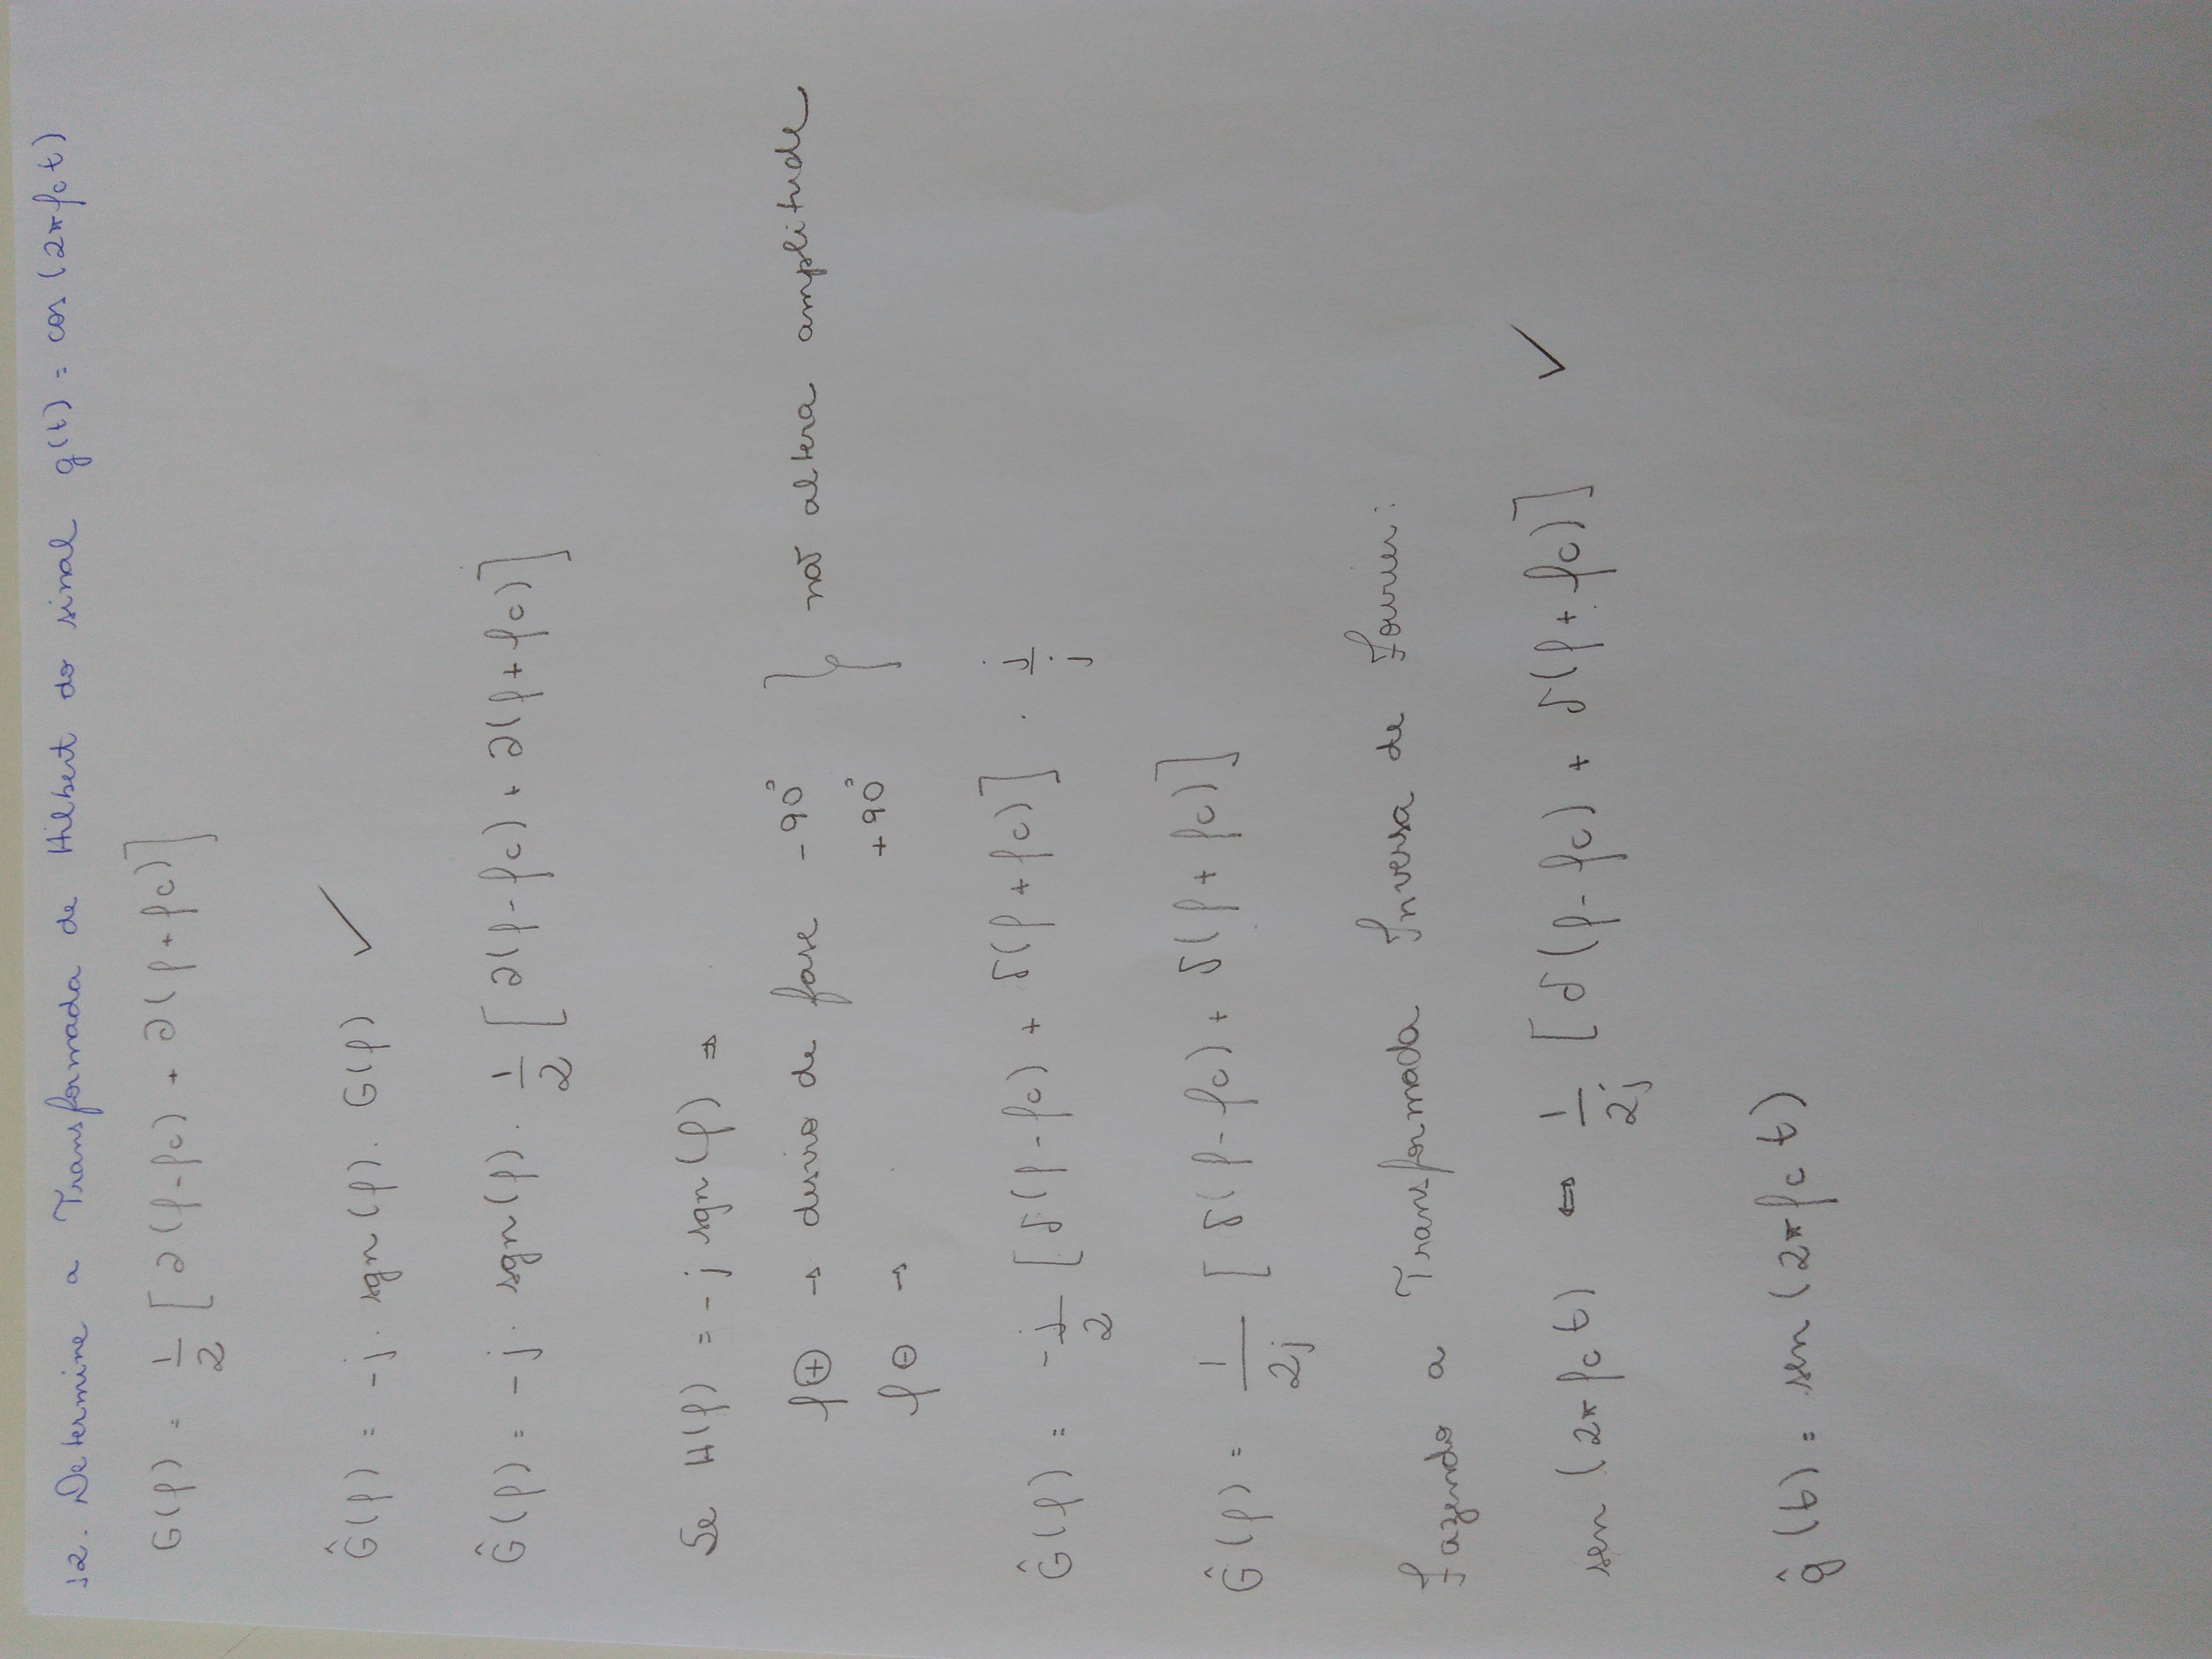 12. Determine a Transformada de Hilbert do sinal g(t) = cos (2π fc t)
G(f) = 1/2 [∂(f-fc) + ∂(f+fc)]
Ĝ(f) = -j. sgn(f). G(f) ✓
Ĝ(f) = -j. sgn(f). 1/2 [∂(f-fc) + ∂(f+fc)]
Se H(f) = -j sgn(f) ⇒
f⊕ → desvio de fase -90°
f⊖ → +90°
} não altera amplitude
Ĝ(f) = -j/2 [δ(f-fc) + δ(f+fc)] . j/j
Ĝ(f) = 1/2j [δ(f-fc) + δ(f+fc)]
Fazendo a Transformada Inversa de Fourier:
sen (2π fc t) ⇔ 1/2j [δ(f-fc) + δ(f+fc)] ✓
ĝ(t) = sen (2π fc t)